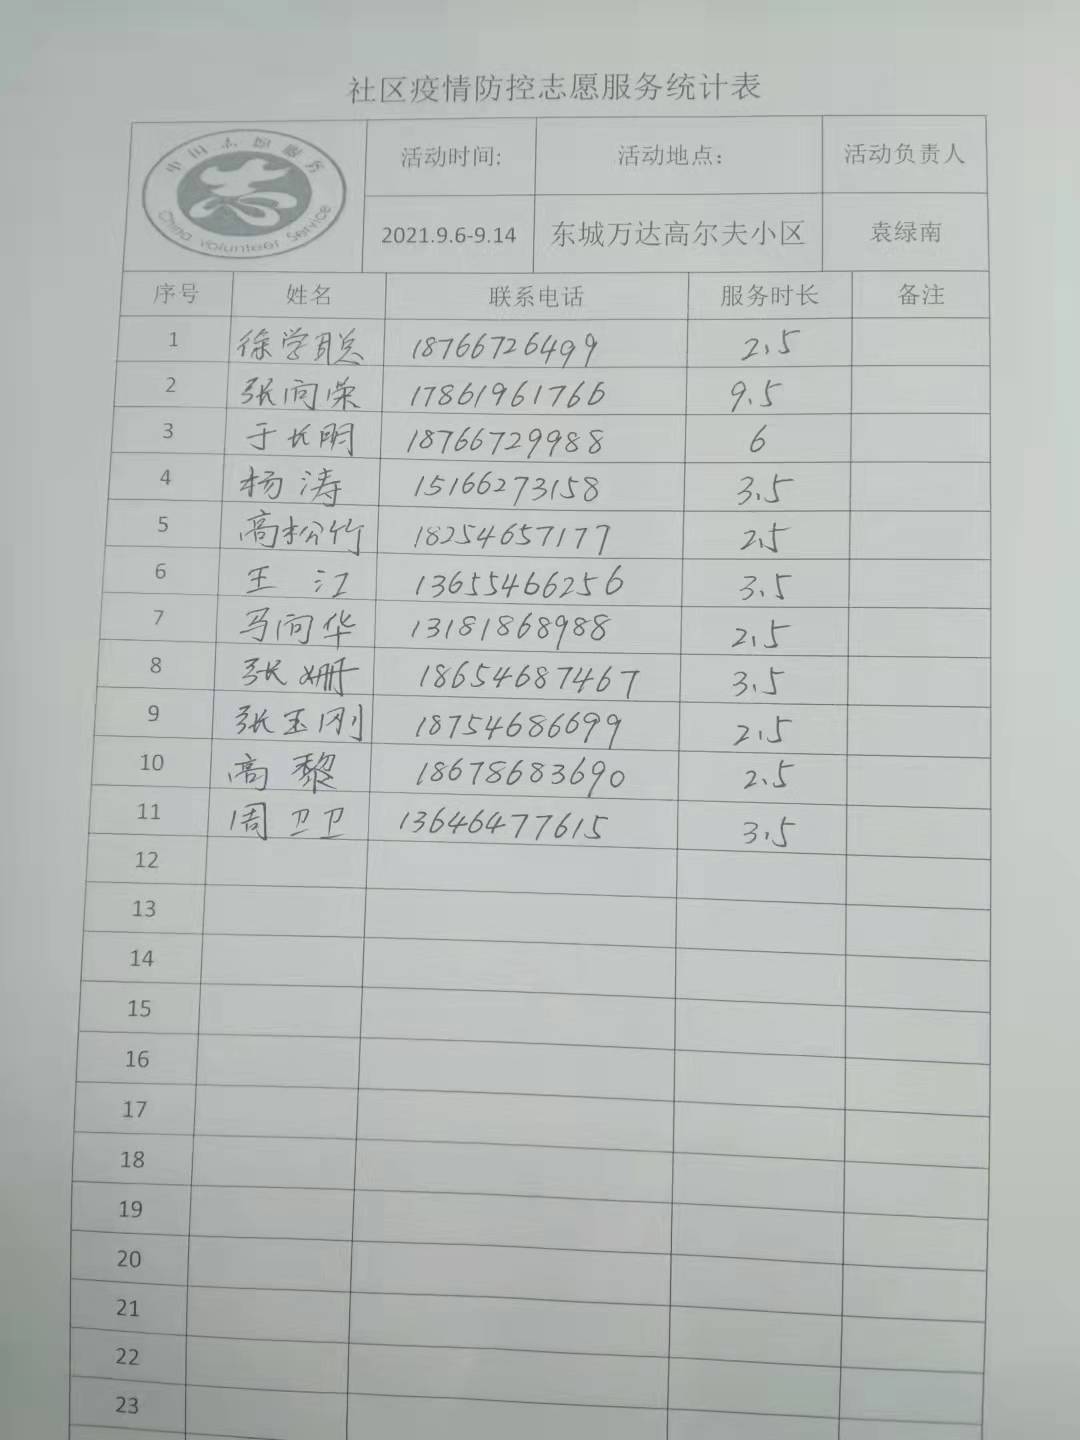 社区疫情防控志愿服务统计表
中国志愿服务
China Volunteer Service
活动时间: 活动地点: 活动负责人
2021.9.6-9.14 东城万达高尔夫小区 袁绿南
序号 姓名 联系电话 服务时长 备注
1 徐学聪 18766726499 2.5
2 张向荣 17861961766 9.5
3 于长明 18766729988 6
4 杨涛 15166273158 3.5
5 高松竹 18254657177 2.5
6 王江 13655466256 3.5
7 马向华 13181868988 2.5
8 张姗 18654687467 3.5
9 张玉刚 18754686699 2.5
10 高黎 18678683690 2.5
11 周卫卫 13646477615 3.5
12
13
14
15
16
17
18
19
20
21
22
23